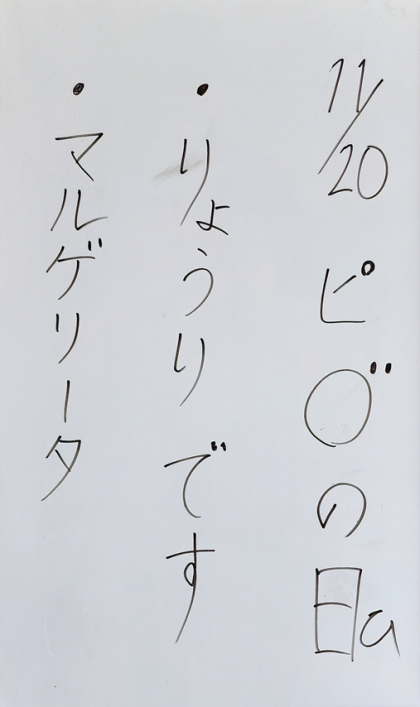 11/20 ピ〇゛の日a
・りょうりです
・マルゲリータ